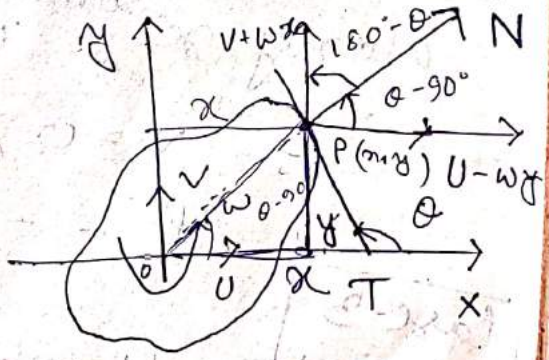 y
V+Wx
180°-θ
N
θ-90°
x
P(x,y)
U-Wy
V
W
θ-90
y
θ
O
U
x
T
X